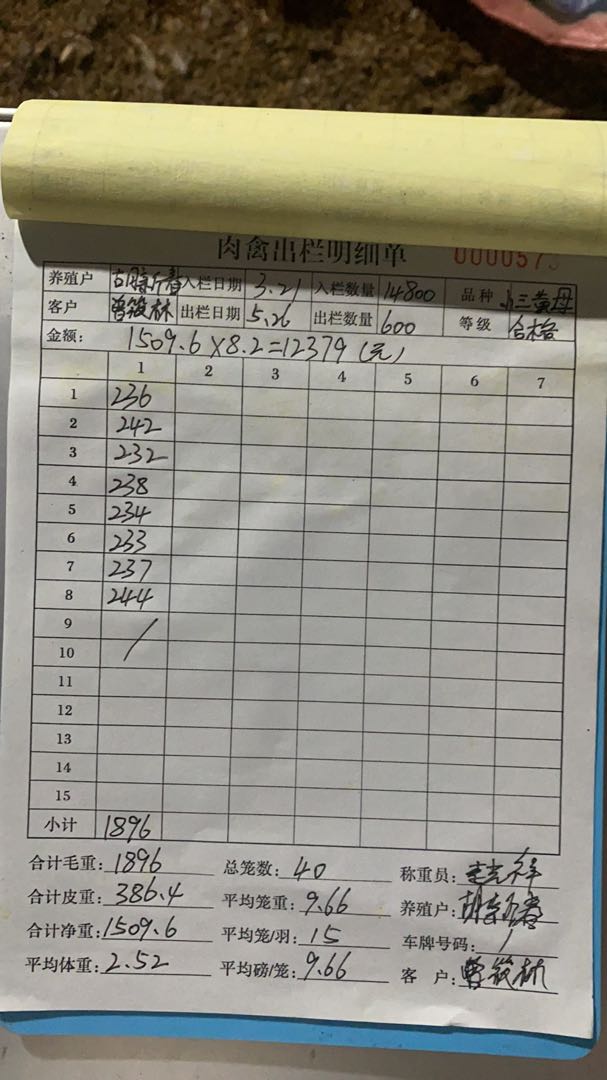 肉禽出栏明细单 000057
养殖户 入栏日期 3.21 入栏数量 14800 品种 小三黄母
客户 曾筱林 出栏日期 5.26 出栏数量 600 等级 合格
金额: 1509.6×8.2=12379(元)
1 2 3 4 5 6 7
1 236
2 242
3 232
4 238
5 234
6 233
7 237
8 244
9 /
10
11
12
13
14
15
小计 1896
合计毛重: 1896 总笼数: 40 称重员:
合计皮重: 386.4 平均笼重: 9.66 养殖户:
合计净重: 1509.6 平均笼/羽: 15 车牌号码: /
平均体重: 2.52 平均磅/笼: 9.66 客 户: 曾筱林